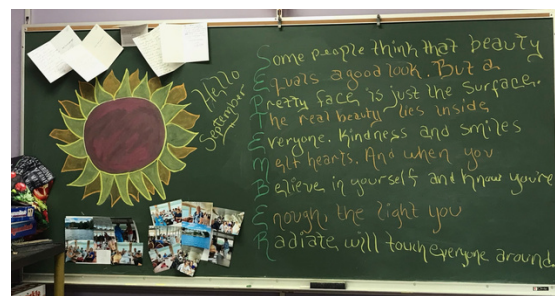 Hello
September
Some people think that beauty
Equals a good look. But a
Pretty face is just the surface.
The real beauty lies inside
Everyone. Kindness and smiles
Melt hearts. And when you
Believe in yourself and know you're
Enough, the light you
Radiate, will touch everyone around.